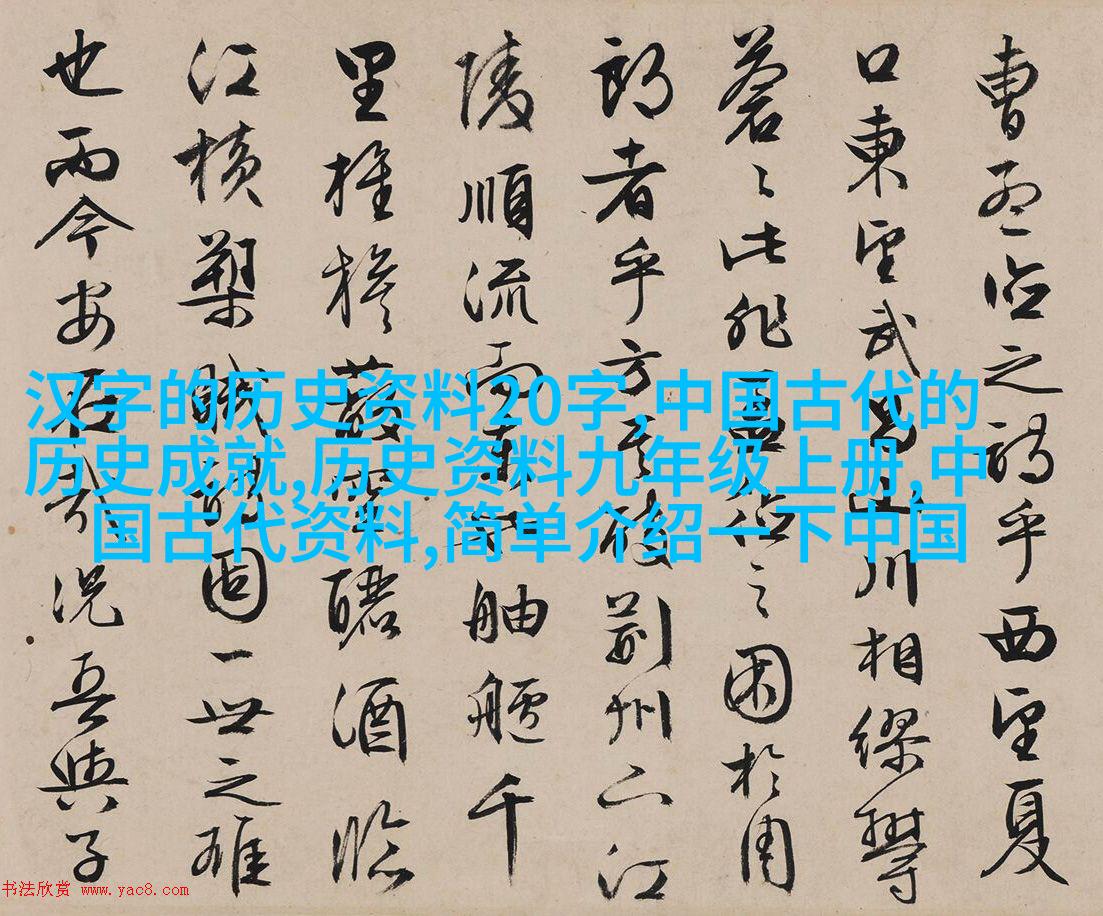 曹孟德之詩乎西望夏
口東望武昌山川相繆鬱
蒼々此非孟德之困於周
郎者乎方其破荊州下江
陵順流而東也舳艫千
里旌旗蔽空釃酒臨
江橫槊賦詩固一世之雄
也而今安在哉況吾與子
汉字的历史资料20字,中国古代的
历史成就,历史资料九年级上册,中
国古代资料,简单介绍一下中国
书法欣赏 www.yac8.com